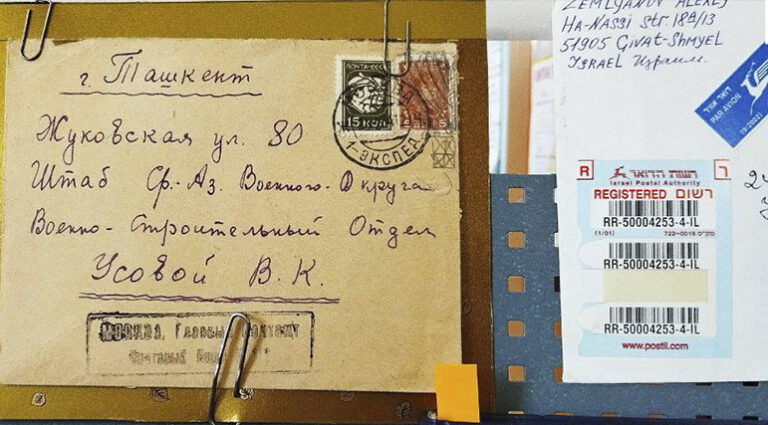 г. Ташкент
Жуковская ул. 80
Штаб Ср.-Аз. Военного-Округа
Военно-Строительный Отдел
Усовой В. К.
ПОЧТА СССР
15 КОП.
1-ЭКСПЕД
МОСКВА, ГЛАВНЫЙ ПОЧТАМТ
ZEMLYANOV ALEXEJ
HA-NASSI str. 18A/13
51905 GIVAT-SHMYEL
ISRAEL Израиль.
דואר אויר
PAR AVION
(9/2002)
R
רשות הדואר
ר
Israel Postal Authority
REGISTERED רשום
RR-50004253-4-IL
(1/01) 722-0016 מק"ט
RR-50004253-4-IL
RR-50004253-4-IL
www.postil.com